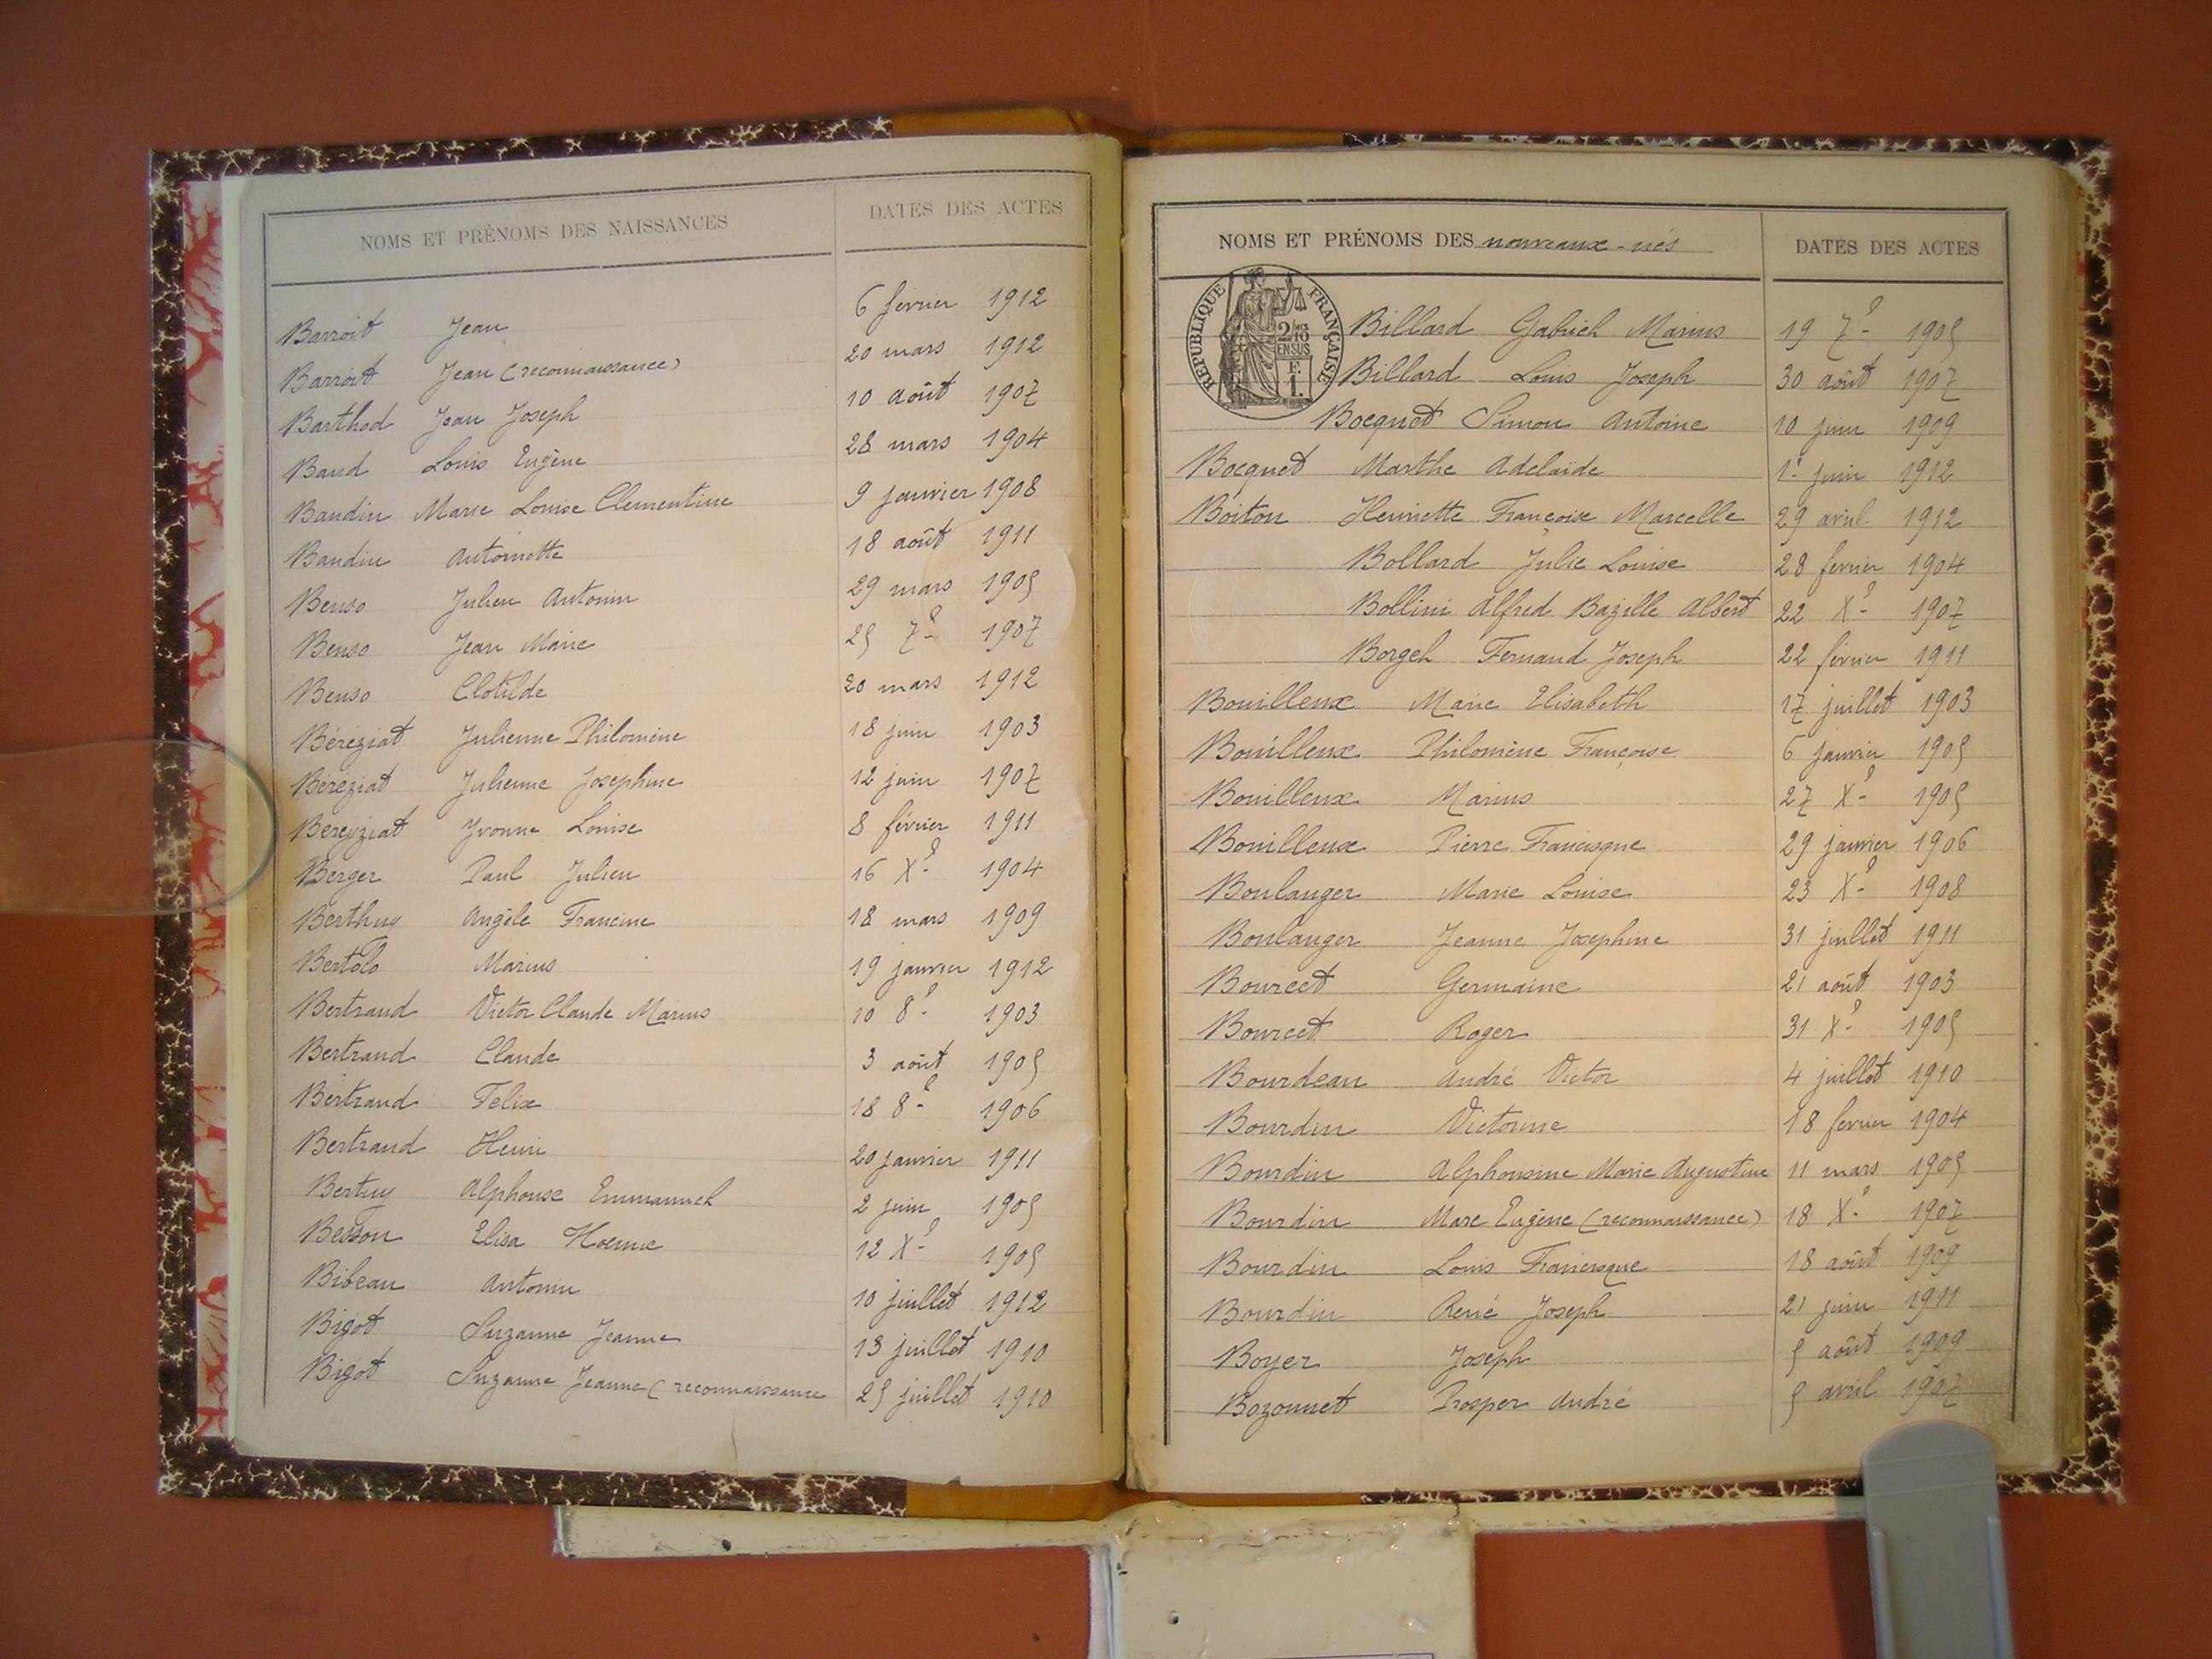 NOMS ET PRÉNOMS DES NAISSANCES DATES DES ACTES
Barroit Jean 6 février 1912
Barroit Jean (reconnaissance) 20 mars 1912
Barthod Jean Joseph 10 août 1907
Baud Louis Eugène 28 mars 1904
Baudin Marie Louise Clementine 9 janvier 1908
Baudin Antoinette 18 août 1911
Benso Julien Antonin 29 mars 1905
Benso Jean Marie 25 7e 1907
Benso Clotilde 20 mars 1912
Béréziat Julienne Philomène 18 juin 1903
Béréziat Julienne Josephine 12 juin 1907
Bereyziat Yvonne Louise 8 février 1911
Berger Paul Julien 16 Xe 1904
Berthuy Angèle Francine 18 mars 1909
Bertolo Marius 19 janvier 1912
Bertrand Victor Claude Marius 10 8e 1903
Bertrand Claude 3 août 1905
Bertrand Felix 18 8e 1906
Bertrand Henri 20 janvier 1911
Bertuy Alphonse Emmanuel 2 juin 1905
Besson Elisa Noemie 12 Xe 1905
Bibeau Antonin 10 juillet 1912
Bigot Suzanne Jeanne 13 juillet 1910
Bigot Suzanne Jeanne (reconnaissance 25 juillet 1910
NOMS ET PRÉNOMS DES nouveaux-nés DATES DES ACTES
RÉPUBLIQUE FRANÇAISE
2/10
EN SUS
F.
1.
Billard Gabriel Marius 19 7e 1905
Billard Louis Joseph 30 août 1907
Bocquet Simon Antoine 10 juin 1909
Bocquet Marthe Adelaïde 1er juin 1912
Boiton Henriette Françoise Marcelle 29 avril 1912
Bollard Julie Louise 28 fevrier 1904
Bollini Alfred Bazille Albert 22 Xe 1907
Borgel Fernand Joseph 22 février 1911
Bouilleux Marie Elisabeth 17 juillet 1903
Bouilleux Philomène Françoise 6 janvier 1905
Bouilleux Marius 27 Xe 1905
Bouilleux Pierre Francisque 29 janvier 1906
Boulanger Marie Louise 23 Xe 1908
Boulanger Jeanne Josephine 31 juillet 1911
Bourcet Germaine 21 août 1903
Bourcet Roger 31 Xe 1905
Bourdeau André Victor 4 juillet 1910
Bourdin Victorine 18 fevrier 1904
Bourdin Alphonsine Marie Augustine 11 mars 1905
Bourdin Marc Eugène (reconnaissance) 18 Xe 1907
Bourdin Louis Francisque 18 août 1909
Bourdin René Joseph 21 juin 1911
Boyer Joseph 5 août 1909
Bozonnet Prosper André 5 avril 1907